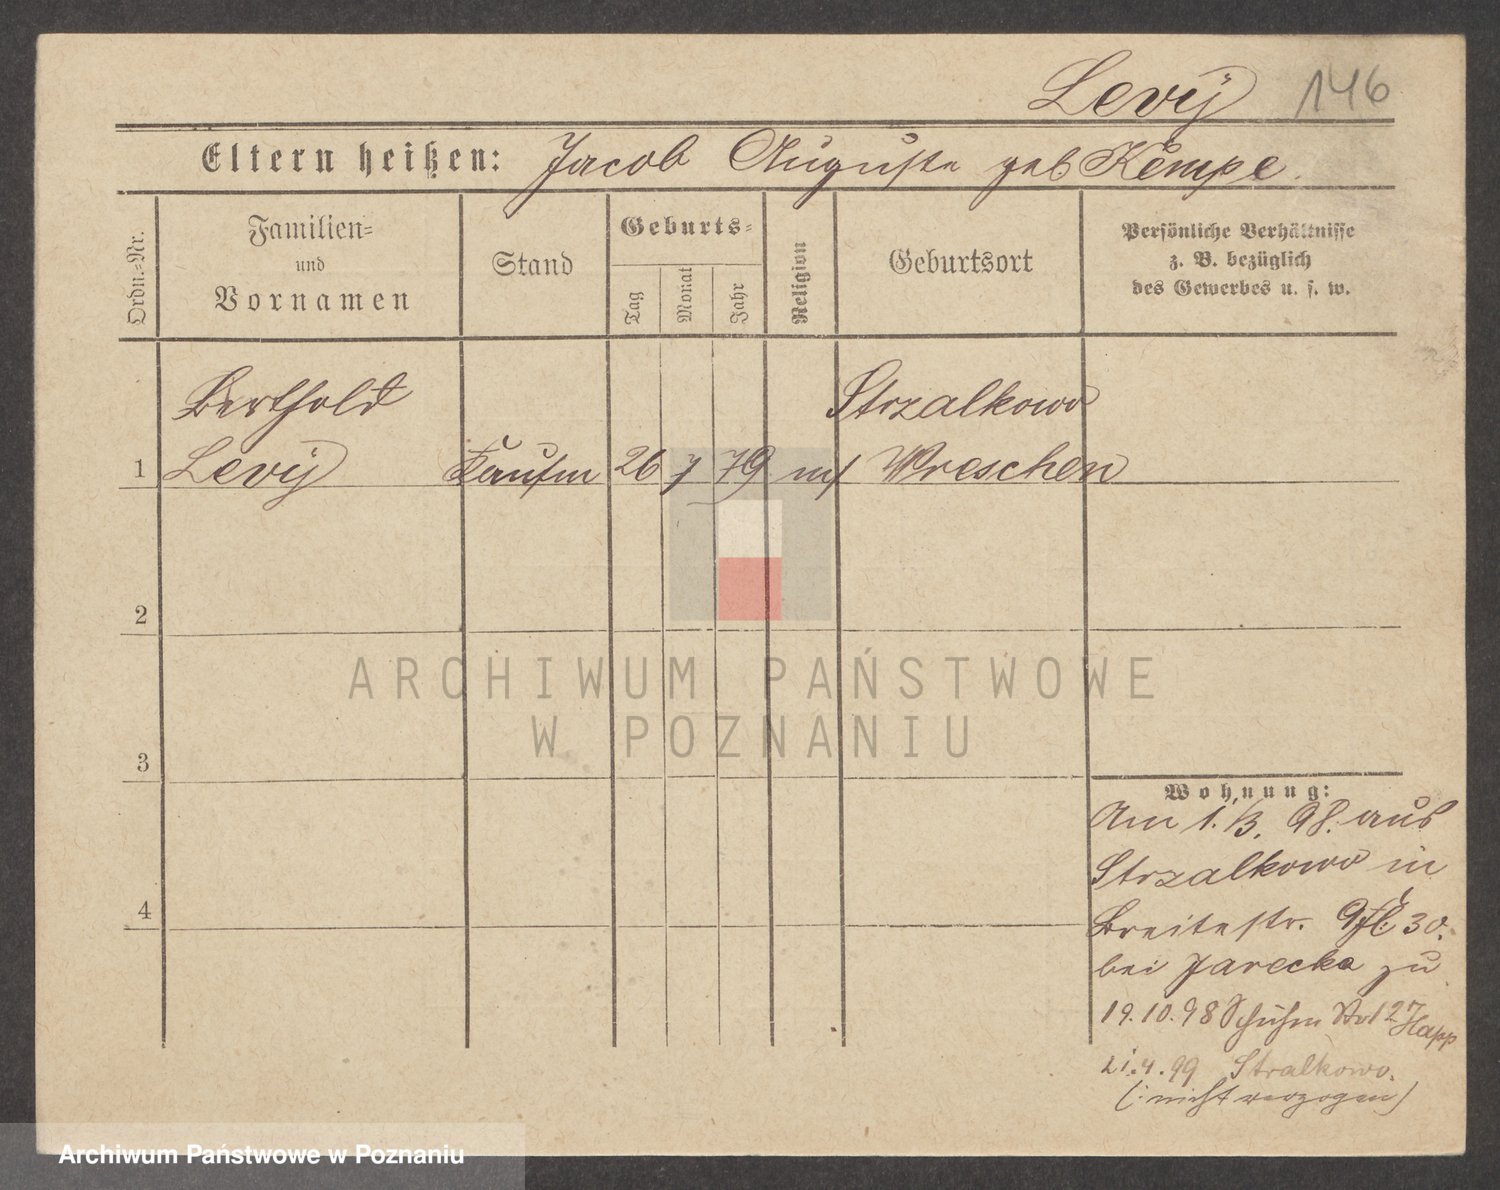 Levÿ 146
Eltern heißen: Jacob Auguste geb Kempe.
Ordn.-Nr.
Familien-
und
Vornamen
Stand
Geburts-
Tag
Monat
Jahr
Religion
Geburtsort
Persönliche Verhältnisse
z. B. bezüglich
des Gewerbes u. s. w.
Berthold Strzalkowo
1 Levÿ Kaufm 26 7 79 mos Wreschen
2
3
4
Wohnung:
Am 1./3. 98. aus
Strzalkowo in
Breitestr. 30.
bei Jarecka zu
19.10.98 Schuhm 12 Happ
21.4.99 Stralkowo.
(: nicht verzogen)
ARCHIWUM PAŃSTWOWE
W POZNANIU
Archiwum Państwowe w Poznaniu